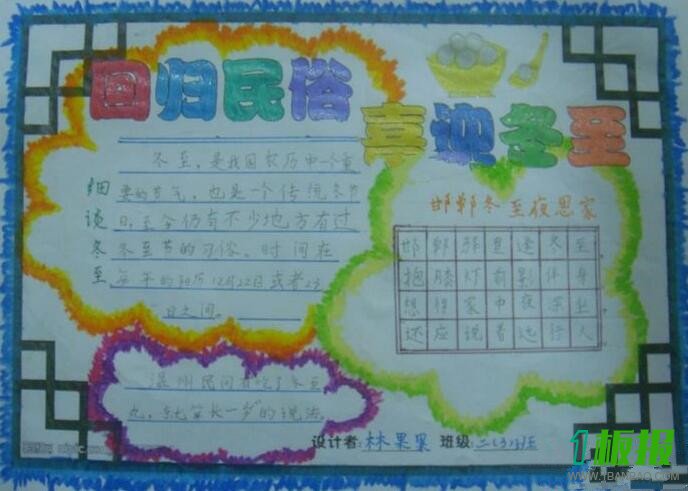 回归民俗
喜迎冬至
细谈冬至
冬至,是我国农历中一个重
要的节气,也是一个传统冬节
日,至今仍有不少地方有过
冬至节的习俗。时间在
每年的阳历12月22日或者23
日之间。
邯郸冬至夜思家
邯郸驿里逢冬至。
抱膝灯前影伴身
想得家中夜深坐。
还应说着远行人
温州民间有吃了冬至
丸,就算长一岁的说法。
设计者:林果果 班级:
板报
WWW.JBANBAO.COM